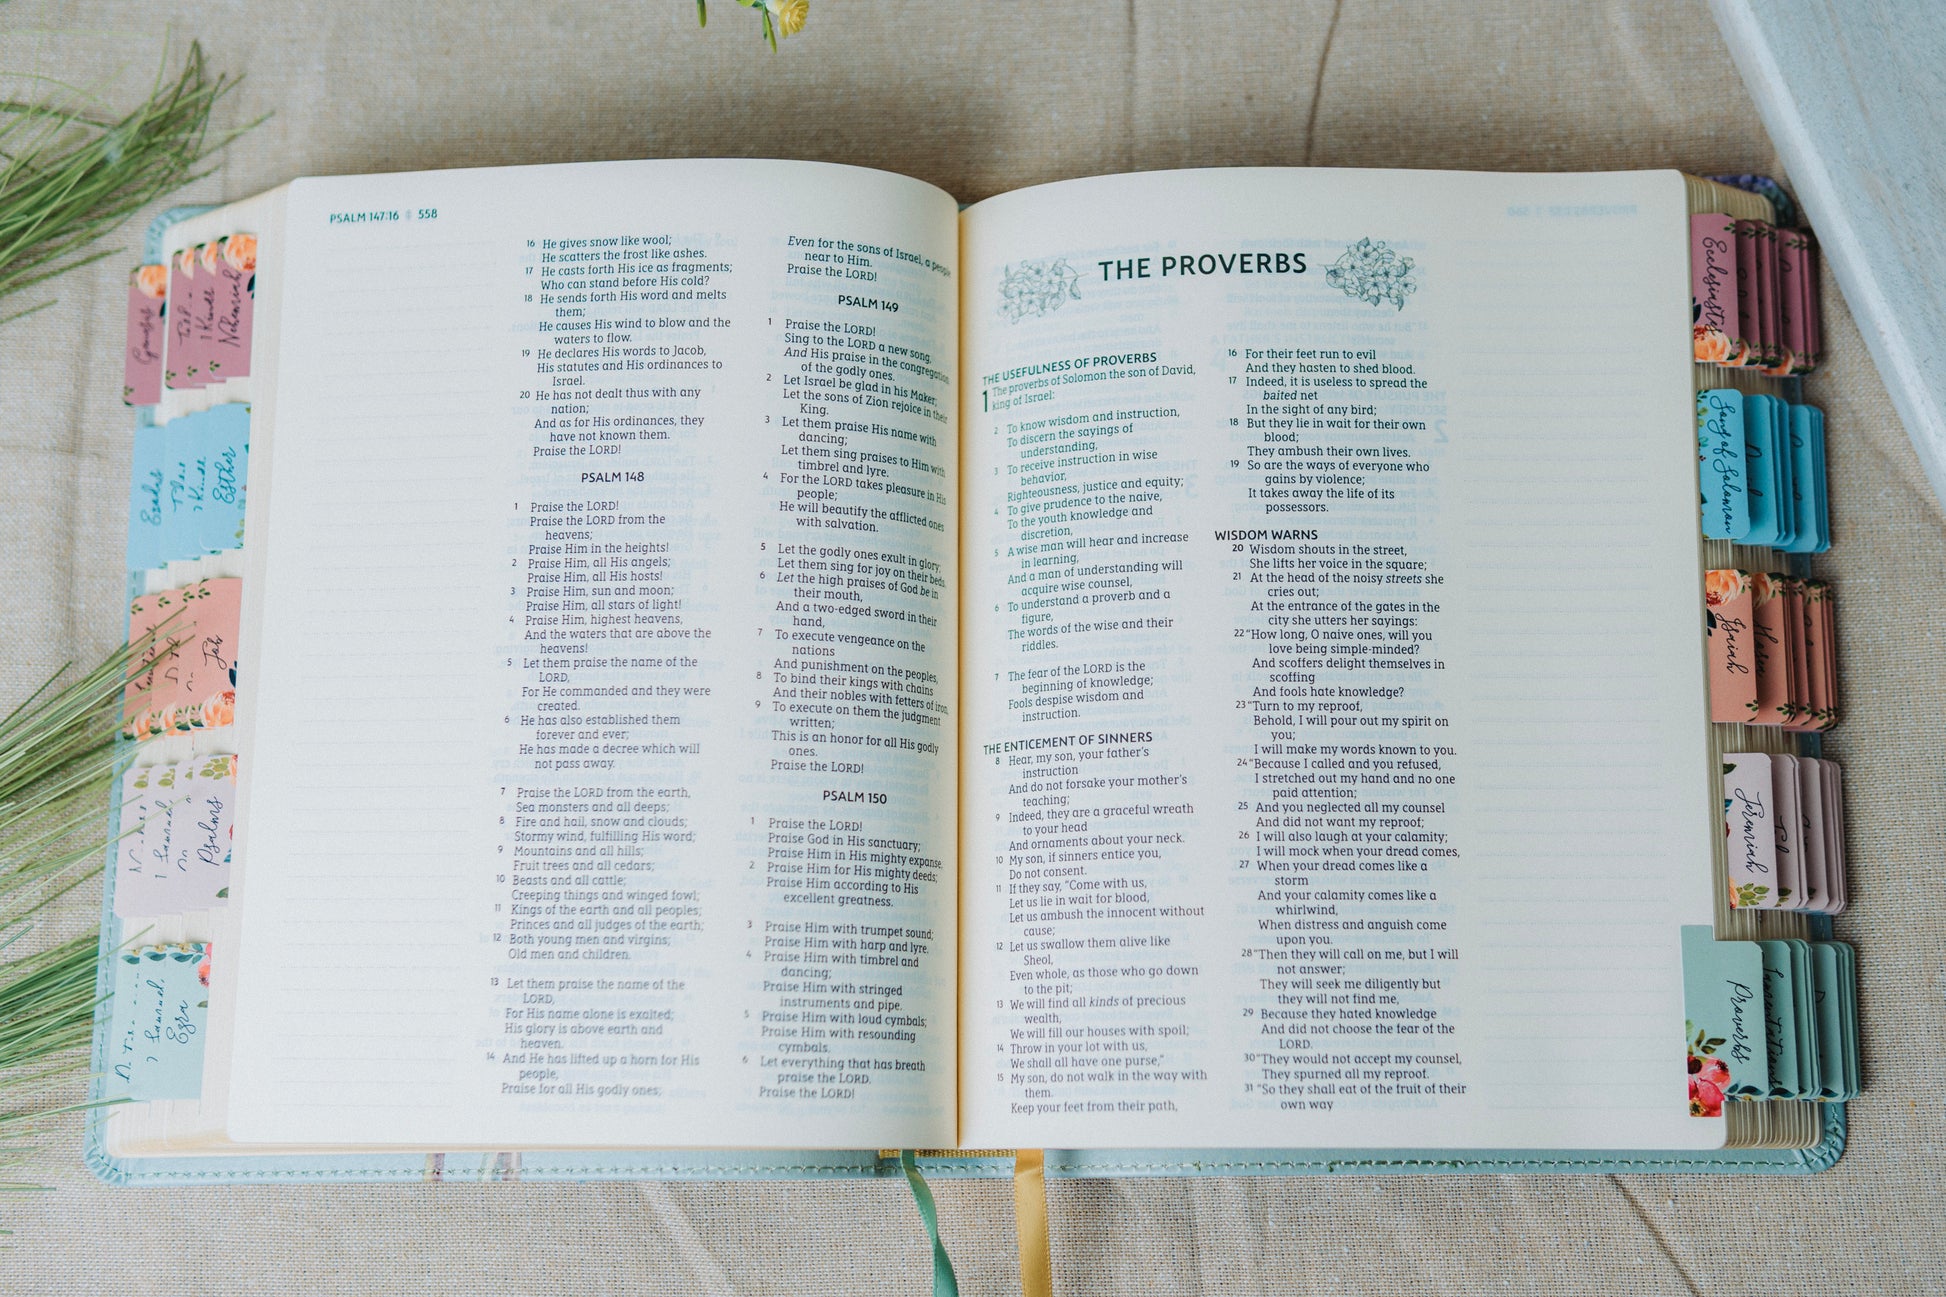 PSALM 147:16 558
16 He gives snow like wool;
He scatters the frost like ashes.
17 He casts forth His ice as fragments;
Who can stand before His cold?
18 He sends forth His word and melts
them;
He causes His wind to blow and the
waters to flow.
19 He declares His words to Jacob,
His statutes and His ordinances to
Israel.
20 He has not dealt thus with any
nation;
And as for His ordinances, they
have not known them.
Praise the LORD!
PSALM 148
1 Praise the LORD!
Praise the LORD from the
heavens;
Praise Him in the heights!
2 Praise Him, all His angels;
Praise Him, all His hosts!
3 Praise Him, sun and moon;
Praise Him, all stars of light!
4 Praise Him, highest heavens,
And the waters that are above the
heavens!
5 Let them praise the name of the
LORD,
For He commanded and they were
created.
6 He has also established them
forever and ever;
He has made a decree which will
not pass away.
7 Praise the LORD from the earth,
Sea monsters and all deeps;
8 Fire and hail, snow and clouds;
Stormy wind, fulfilling His word;
9 Mountains and all hills;
Fruit trees and all cedars;
10 Beasts and all cattle;
Creeping things and winged fowl;
11 Kings of the earth and all peoples;
Princes and all judges of the earth;
12 Both young men and virgins;
Old men and children.
13 Let them praise the name of the
LORD,
For His name alone is exalted;
His glory is above earth and
heaven.
14 And He has lifted up a horn for His
people,
Praise for all His godly ones;
Even for the sons of Israel, a people
near to Him.
Praise the LORD!
PSALM 149
1 Praise the LORD!
Sing to the LORD a new song,
And His praise in the congregation
of the godly ones.
2 Let Israel be glad in his Maker;
Let the sons of Zion rejoice in their
King.
3 Let them praise His name with
dancing;
Let them sing praises to Him with
timbrel and lyre.
4 For the LORD takes pleasure in His
people;
He will beautify the afflicted ones
with salvation.
5 Let the godly ones exult in glory;
Let them sing for joy on their beds.
6 Let the high praises of God be in
their mouth,
And a two-edged sword in their
hand,
7 To execute vengeance on the
nations
And punishment on the peoples,
8 To bind their kings with chains
And their nobles with fetters of iron,
9 To execute on them the judgment
written;
This is an honor for all His godly
ones.
Praise the LORD!
PSALM 150
1 Praise the LORD!
Praise God in His sanctuary;
Praise Him in His mighty expanse.
2 Praise Him for His mighty deeds;
Praise Him according to His
excellent greatness.
3 Praise Him with trumpet sound;
Praise Him with harp and lyre.
4 Praise Him with timbrel and
dancing;
Praise Him with stringed
instruments and pipe.
5 Praise Him with loud cymbals;
Praise Him with resounding
cymbals.
6 Let everything that has breath
praise the LORD.
Praise the LORD!
THE PROVERBS
THE USEFULNESS OF PROVERBS
1 The proverbs of Solomon the son of David,
king of Israel:
2 To know wisdom and instruction,
To discern the sayings of
understanding,
3 To receive instruction in wise
behavior,
Righteousness, justice and equity;
4 To give prudence to the naive,
To the youth knowledge and
discretion,
5 A wise man will hear and increase
in learning,
And a man of understanding will
acquire wise counsel,
6 To understand a proverb and a
figure,
The words of the wise and their
riddles.
7 The fear of the LORD is the
beginning of knowledge;
Fools despise wisdom and
instruction.
THE ENTICEMENT OF SINNERS
8 Hear, my son, your father's
instruction
And do not forsake your mother's
teaching;
9 Indeed, they are a graceful wreath
to your head
And ornaments about your neck.
10 My son, if sinners entice you,
Do not consent.
11 If they say, "Come with us,
Let us lie in wait for blood,
Let us ambush the innocent without
cause;
12 Let us swallow them alive like
Sheol,
Even whole, as those who go down
to the pit;
13 We will find all kinds of precious
wealth,
We will fill our houses with spoil;
14 Throw in your lot with us,
We shall all have one purse,"
15 My son, do not walk in the way with
them.
Keep your feet from their path,
16 For their feet run to evil
And they hasten to shed blood.
17 Indeed, it is useless to spread the
baited net
In the sight of any bird;
18 But they lie in wait for their own
blood;
They ambush their own lives.
19 So are the ways of everyone who
gains by violence;
It takes away the life of its
possessors.
WISDOM WARNS
20 Wisdom shouts in the street,
She lifts her voice in the square;
21 At the head of the noisy streets she
cries out;
At the entrance of the gates in the
city she utters her sayings:
22 "How long, O naive ones, will you
love being simple-minded?
And scoffers delight themselves in
scoffing
And fools hate knowledge?
23 "Turn to my reproof,
Behold, I will pour out my spirit on
you;
I will make my words known to you.
24 "Because I called and you refused,
I stretched out my hand and no one
paid attention;
25 And you neglected all my counsel
And did not want my reproof;
26 I will also laugh at your calamity;
I will mock when your dread comes,
27 When your dread comes like a
storm
And your calamity comes like a
whirlwind,
When distress and anguish come
upon you.
28 "Then they will call on me, but I will
not answer;
They will seek me diligently but
they will not find me,
29 Because they hated knowledge
And did not choose the fear of the
LORD.
30 "They would not accept my counsel,
They spurned all my reproof.
31 "So they shall eat of the fruit of their
own way
Genesis
1 Kings
Nehemiah
Exodus
2 Kings
Esther
Job
1 Samuel
Psalms
2 Samuel
Ezra
Ecclesiastes
Song of Solomon
Isaiah
Hosea
Jeremiah
Proverbs
Lamentations